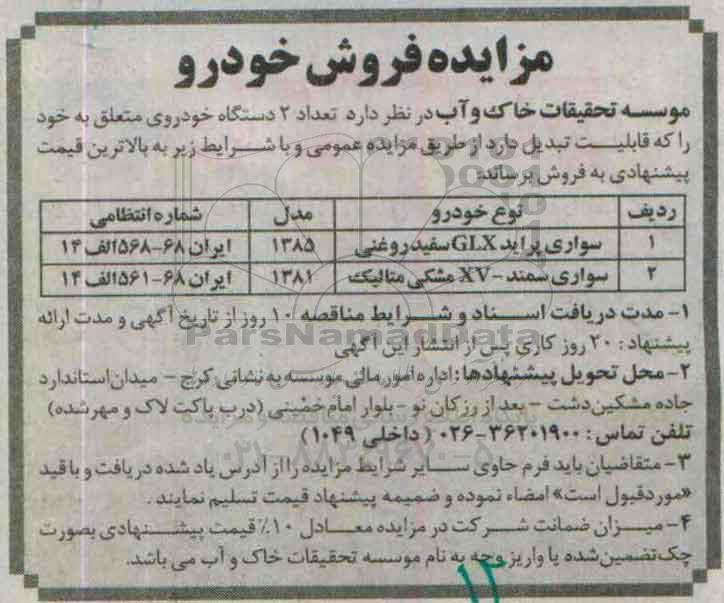 مزایده فروش خودرو
موسسه تحقیقات خاک و آب در نظر دارد تعداد ۲ دستگاه خودروی متعلق به خود
را که قابلیت تبدیل دارد از طریق مزایده عمومی و با شرایط زیر به بالاترین قیمت
پیشنهادی به فروش برساند:
ردیف نوع خودرو مدل شماره انتظامی
۱ سواری پراید GLX سفید روغنی ۱۳۸۵ ایران ۶۸-۵۶۸الف ۱۴
۲ سواری سمند - XV مشکی متالیک ۱۳۸۱ ایران ۶۸-۵۶۱الف ۱۴
۱- مدت دریافت اسناد و شرایط مناقصه ۱۰ روز از تاریخ آگهی و مدت ارائه
پیشنهاد: ۲۰ روز کاری پس از انتشار این آگهی
ParsNamadData
۲- محل تحویل پیشنهادها: اداره امور مالی موسسه به نشانی کرج - میدان استاندارد
جاده مشکین‌دشت - بعد از رزکان نو - بلوار امام خمینی (درب پاکت لاک و مهر شده)
تلفن تماس: ۳۶۲۰۱۹۰۰-۰۲۶ (داخلی ۱۰۴۹)
۰۲۱-۸۸۳۴۹۶۷۰-۵
۳- متقاضیان باید فرم حاوی سایر شرایط مزایده را از آدرس یاد شده دریافت و با قید
«مورد قبول است» امضاء نموده و ضمیمه پیشنهاد قیمت تسلیم نمایند.
۴- میزان ضمانت شرکت در مزایده معادل ۱۰٪ قیمت پیشنهادی بصورت
چک تضمین شده یا واریز وجه به نام موسسه تحقیقات خاک و آب می باشد.
۱۲